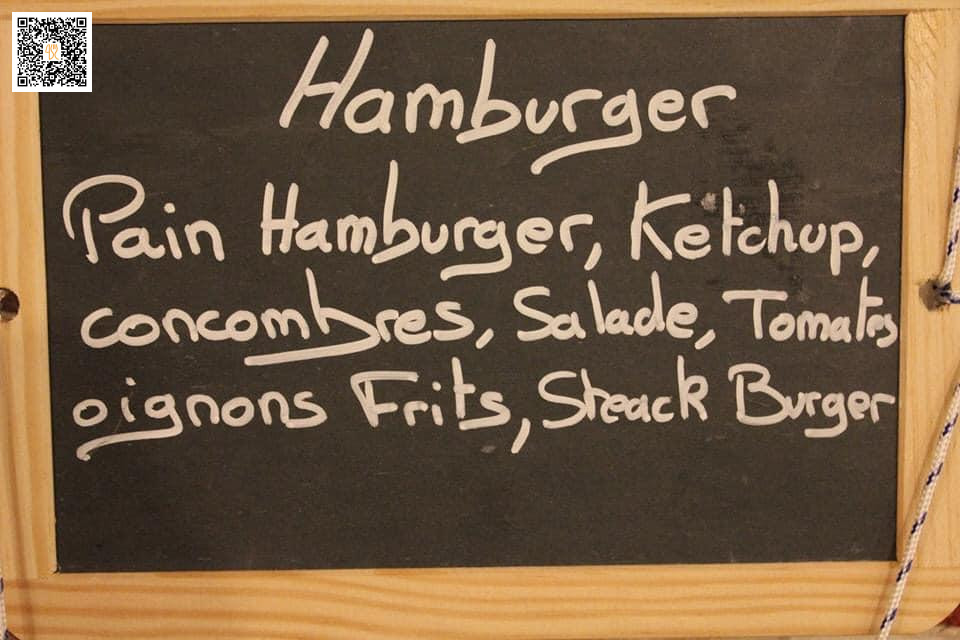 Hamburger
Pain Hamburger, Ketchup,
concombres, Salade, Tomates
oignons Frits, Steack Burger